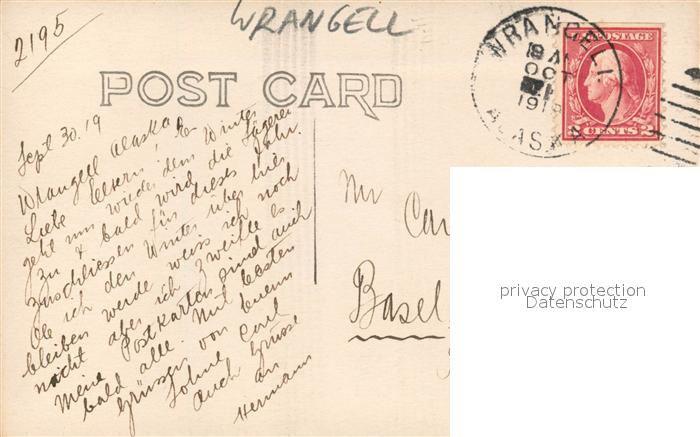 2195
WRANGELL
POST CARD
WRANGELL
OCT
191
ALASKA
POSTAGE
2 CENTS 2
Sept 30. 19
Wrangell Alaska
Liebe Eltern! Es
geht nun wieder dem Winter
zu & bald wird die Sägerei
zuschliessen für dieses Jahr.
Ob ich den Winter über hier
bleiben werde weiss ich noch
nicht aber ich zweifle es
Meine Postkarten sind auch
bald alle. Mit besten
Grüssen von Euerm
Sohne Carl
auch Grüsse
an
Hermann
Mr Car
Basel
privacy protection
Datenschutz